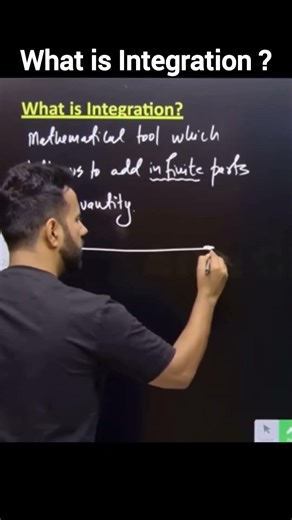 What is Integration ?
What is Integration?
Mathematical tool which
us to add infinite parts